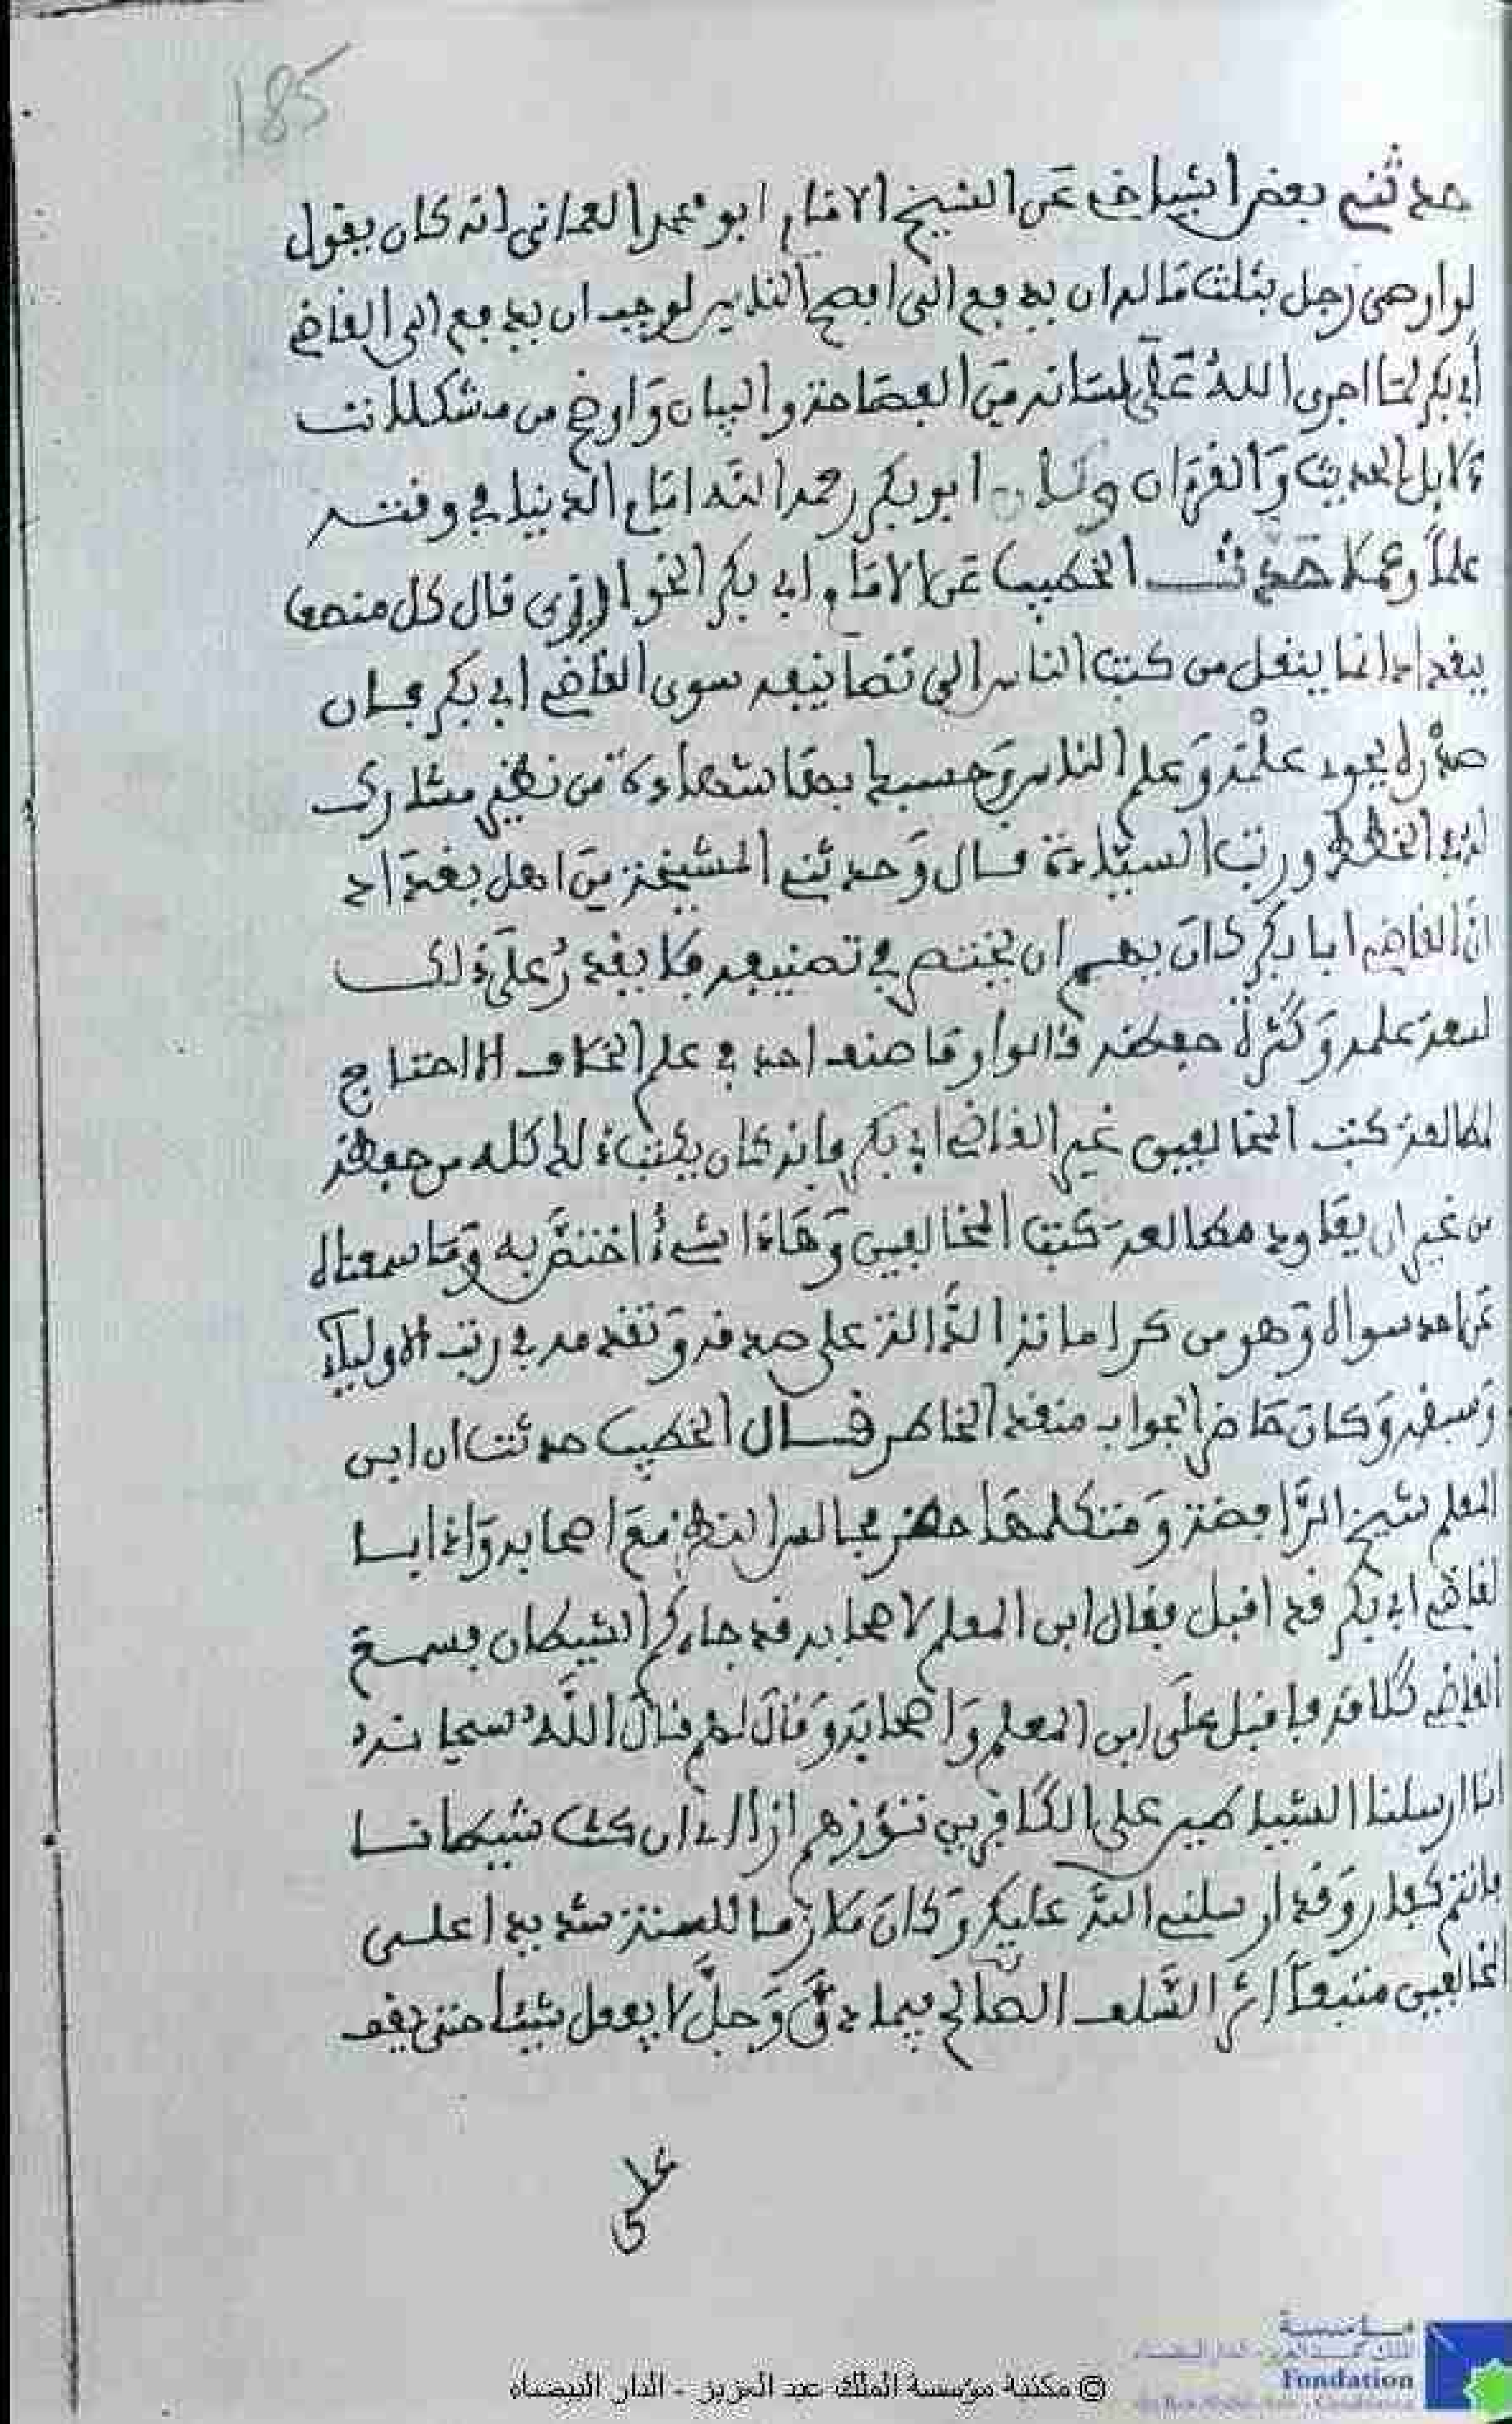 185
حدثني بعض أشياخي عن الشيخ الامام ابو محمد العماني انه كان يقول
لو اوصى رجل بثلث ماله ان يدفع الى افصح الناس لوجب ان يدفع الى القاضي
أبي بكر لما اجرى اللهُ على لسانه من الفصاحة والبيان وَاوضح من مشكلات
الحديث وَالقرءان وكان ابو بكر رحمه الله امام الدنيا في وقته
علماً وعملا حَدثت الخطيب عن الامام ابي بكر الخوارزمي قال كل منصف
ببغداد انما ينقل من كتب الناس الى تصانيفه سوى القاضي ابي بكر فان
صدْره يحوي علْمه وَعلم الناس وَحسبك بها شهادة من نظير مشارك
في الخطة ورتب السيادة قال وَحدثني المشيخة منَ اهل بغدَاد
انَّ القاضي ابا بكر كانَ يهم ان يختصر في تصنيفه فلا يقدرُ علَى ذلك
لسعة علمه وَكثرة حفظه قالوا وما صنف احد في علم الخلاف الا احتاج
لمطالعة كتب المخالفين غير القاضي ابي بكر فانه كان يكتب ذلك كله من حفظه
من غير ان يعاود مطالعة كتب المخالفين وَهَاذا شيءٌ اختصَّ به وَما سمعناه
عن احد سواه وَهو من كراماته الدَّالة على صدقه وَتقدمه في رتب الاولياء
وَسبقه وَكان حَاضر الجواب منقد الخاطر قال الخطيب حدثت ان ابن
المعلم شيخ الرَّافضة وَمتكلمهَا حضر مجالس النظر معَ اصحابه وَاذا بـ
القاضي ابي بكر قد اقبل فقال ابن المعلم لاصحابه قد جاءكم الشيطان فسمع
القاضي كلامه فاقبل علَى ابن المعلم وَاصحابه وَقالَ لهم قالَ اللَّهُ سبحانه
انا ارسلنا الشياطين على الكافرين تؤزهم ازا اي ان كنت شيطانا
فانتم كفار وَقد ارسلني اللهُ عليكم وَكانَ ملازما للسنة شديدا على
المخالفين متبعاً اثر السَّلف الصَّالح فيما دقَّ وَجلَّ لا يفعل شيئا حتى يقف
على
مؤسسة
Fondation
© مكتبة مؤسسة الملك عبد العزيز - الدار البيضاء